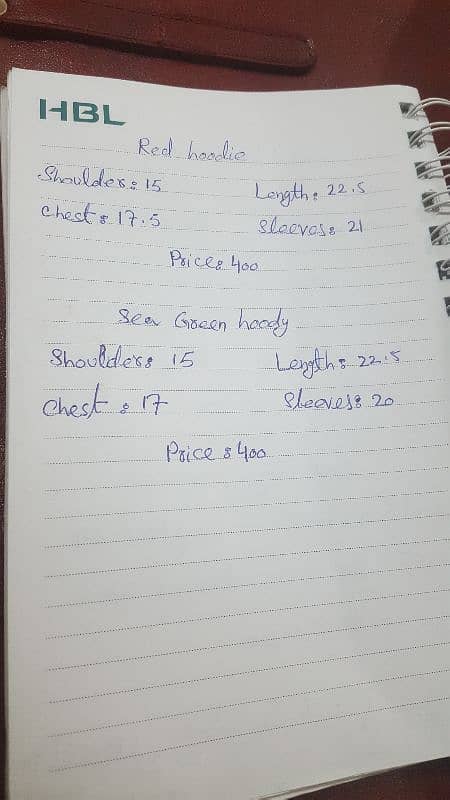 HBL
Red hoodie
Shoulders: 15 Length: 22.5
Chest: 17.5 Sleeves: 21
Price: 400
Sea Green hoody
Shoulders: 15 Length: 22.5
Chest: 17 Sleeves: 20
Price: 400